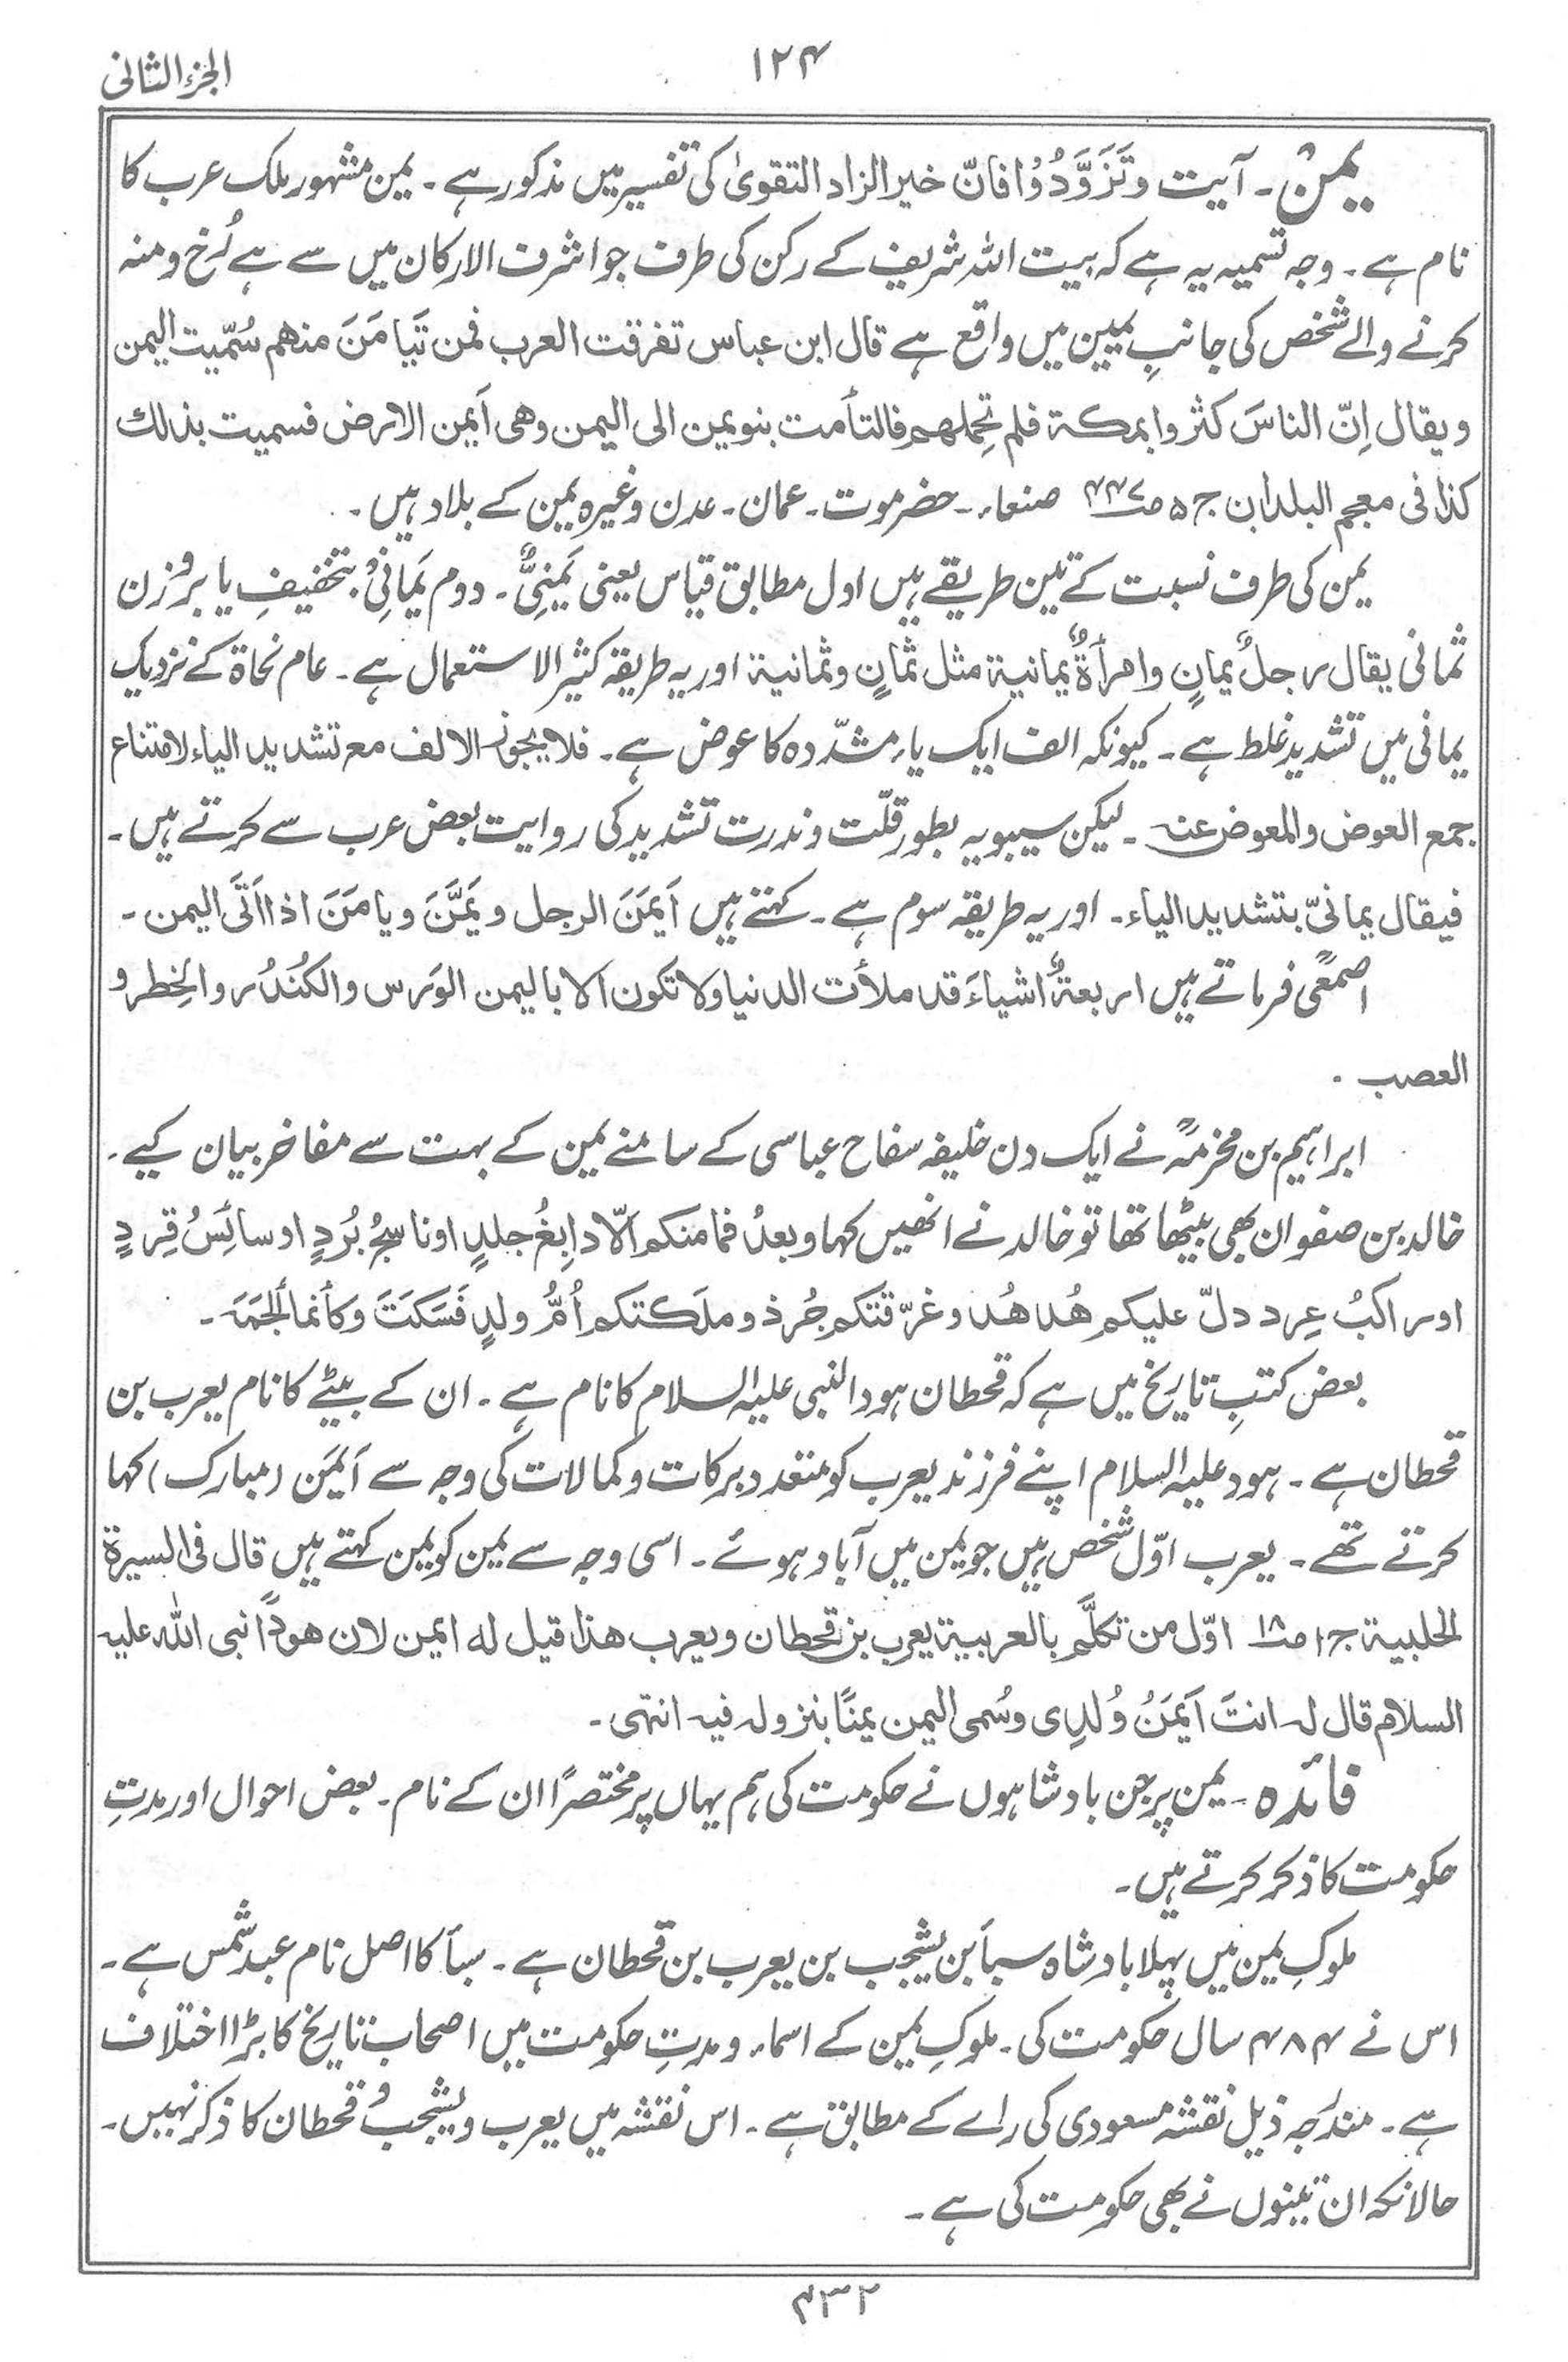 الجزء الثانی
۱۲۴
یمن ۔ آیت وتَزَوَّدُوْا فانّ خیر الزاد التقویٰ کی تفسیر میں مذکور ہے ۔ یمن مشہور ملک عرب کا
نام ہے ۔ وجہ تسمیہ یہ ہے کہ بیت اللہ شریف کے رکن کی طرف جو اشرف الارکان میں سے ہے رُخ و منہ
کرنے والے شخص کی جانبِ یمین میں واقع ہے قال ابن عباس تفرقت العرب فمن تَیَامَنَ منهم سُمّیت الیمن
ویقال اِنّ الناسَ کثروا بمکة فلم تحملهم فالتأمت بنو یمن الی الیمن وهی اَیمن الارض فسمیت بذلك
کذا فی معجم البلدان ج ۵ ص۴۴۷ صنعاء ۔ حضرموت ۔ عمان ۔ عدن وغیرہ یمن کے بلاد ہیں ۔
یمن کی طرف نسبت کے تین طریقے ہیں اول مطابق قیاس یعنی یَمَنِیٌّ ۔ دوم یَمَانِیْ بتخفیفِ یا بروزن
ثمانی یقال رجلٌ یمانٍ وامرأةٌ یمانیة مثل ثمانٍ وثمانیة اور یہ طریقہ کثیر الاستعمال ہے ۔ عام نحاة کے نزدیک
یمانی میں تشدید غلط ہے ۔ کیونکہ الف ایک یاء مشدّدہ کا عوض ہے ۔ فلا یجوز الالف مع تشدید الیاء لامتناع
جمع العوض والمعوض عنہ ۔ لیکن سیبویہ بطور قلّت و ندرت تشدید کی روایت بعض عرب سے کرتے ہیں ۔
فیقال یمانیّ بتشدید الیاء ۔ اور یہ طریقہ سوم ہے ۔ کہتے ہیں اَیمَنَ الرجل ویَمَّنَ ویامَنَ اذا اَتَی الیمن ۔
اصمعیؒ فرماتے ہیں اربعةُ اشیاءَ قد ملأت الدنیا ولا تکون الا بالیمن الوَرس والکُنْدُر والخِطر و
العصب ۔
ابراہیم بن مخرمہؒ نے ایک دن خلیفہ سفاح عباسی کے سامنے یمن کے بہت سے مفاخر بیان کیے ۔
خالد بن صفوان بھی بیٹھا تھا تو خالد نے انھیں کہا وبعدُ فما منکم الّا دابِغُ جلدٍ او ناسِجُ بُردٍ او سائِسُ قِردٍ
او راکبُ عِرد دلّ علیکم هُدهُد وغرّقتکم جُرذ وملَکتکم اُمُّ ولدٍ فَسَکَتَ وکأنما اُلجمَہَ ۔
بعض کتبِ تاریخ میں ہے کہ قحطان ہود النبی علیہ السلام کا نام ہے ۔ ان کے بیٹے کا نام یعرب بن
قحطان ہے ۔ ہود علیہ السلام اپنے فرزند یعرب کو متعدد برکات و کمالات کی وجہ سے اَیْمَن (مبارک) کہا
کرتے تھے ۔ یعرب اوّل شخص ہیں جو یمن میں آباد ہوئے ۔ اسی وجہ سے یمن کو یمن کہتے ہیں قال فی السیرة
الحلبیة ج۱ ص۱۸ اوّل من تکلَّم بالعربیة یعرب بن قحطان ویعرب هذا قیل له ایمن لان هودًا نبی الله علیه
السلام قال له انتَ اَیمَنُ وُلدِی وسُمی الیمن یمنًا بنزوله فیه انتهی ۔
فائدہ ۔ یمن پر جن بادشاہوں نے حکومت کی ہم یہاں پر مختصرًا ان کے نام ۔ بعض احوال اور مدتِ
حکومت کا ذکر کرتے ہیں ۔
ملوکِ یمن میں پہلا بادشاہ سبأ بن یشجب بن یعرب بن قحطان ہے ۔ سبأ کا اصل نام عبد شمس ہے ۔
اس نے ۴۸۴ سال حکومت کی ۔ ملوکِ یمن کے اسماء و مدتِ حکومت میں اصحاب تاریخ کا بڑا اختلاف
ہے ۔ مندرجہ ذیل نقشہ مسعودی کی رائے کے مطابق ہے ۔ اس نقشہ میں یعرب و یشجب و قحطان کا ذکر نہیں ۔
حالانکہ ان تینوں نے بھی حکومت کی ہے ۔
۴۳۲